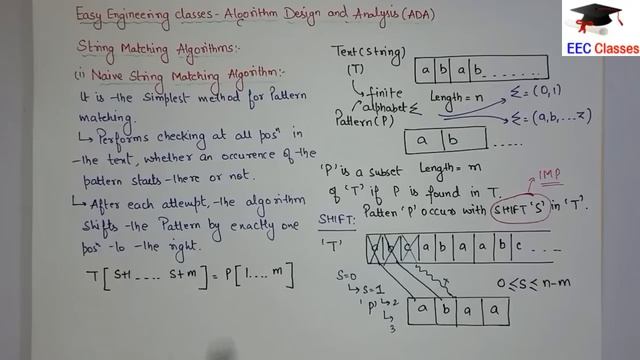 Easy Engineering classes- Algorithm Design and Analysis (ADA)
EEC Classes
String Matching Algorithms:-
(i) Naive String Matching Algorithm:-
It is the simplest method for Pattern
matching.
↳ Performs checking at all posn in
the text, whether an occurence of the
pattern starts there or not.
↳ After each attempt, the algorithm
shifts the Pattern by exactly one
posn to the right.
T[S+1 .... S+m] = P[1....m]
Text (String)
(T)
a b a b .......
finite
alphabet Σ
Length = n
Σ = (0,1)
Σ = (a,b,...z)
Pattern (P)
a b .....
Length = m
'P' is a subset
of 'T' if P is found in T.
IMP
Patten 'P' occurs with SHIFT 'S' in 'T'.
SHIFT:
'T'
a b c a b a a b c . . .
S=0
↳ S=1
'P' ↳ 2
↳ 3
a b a a
0 ≤ S ≤ n-m